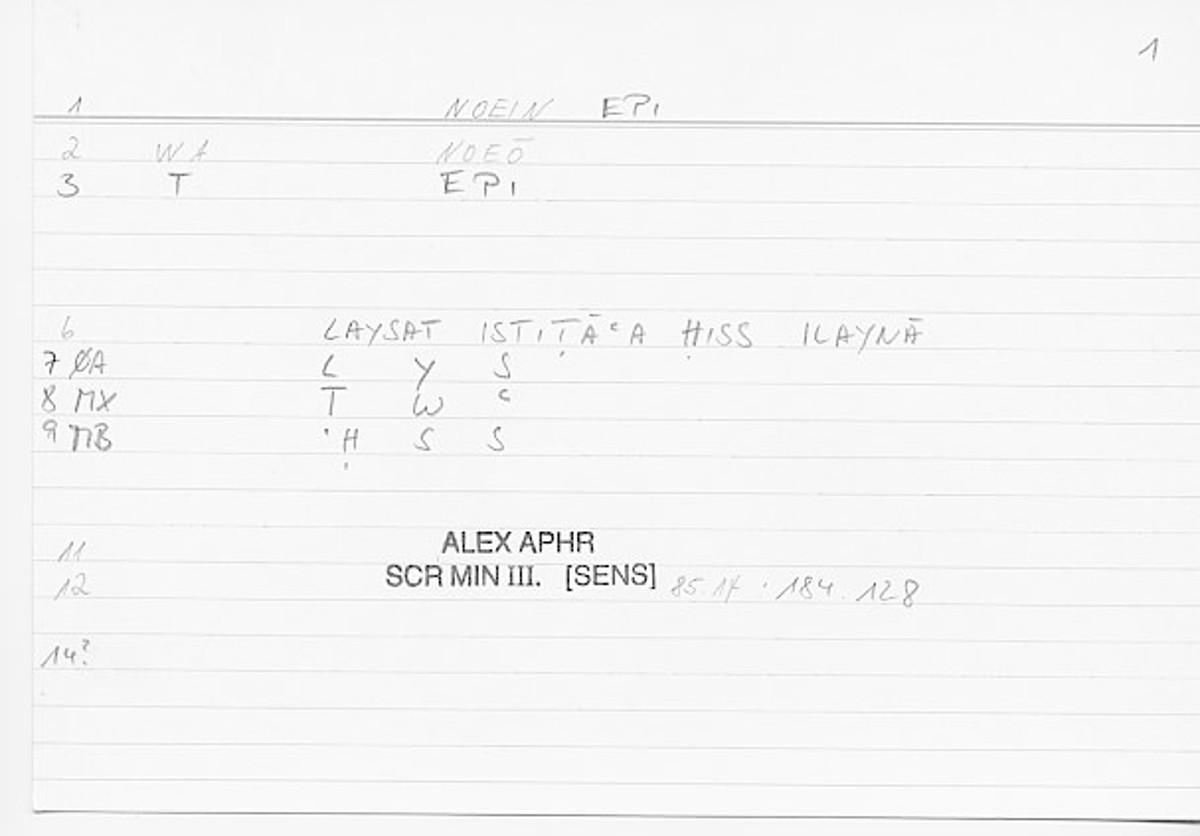 1
1 NOEIN EPI
2 WA NOEŌ
3 T EPI
6 LAYSAT ISTIṬĀʿA ḤISS ILAYNĀ
7 ØA L Y S
8 MX T W ʿ
9 MB Ḥ S S
11 ALEX APHR
12 SCR MIN III. [SENS] 85.17 · 184.128
14?